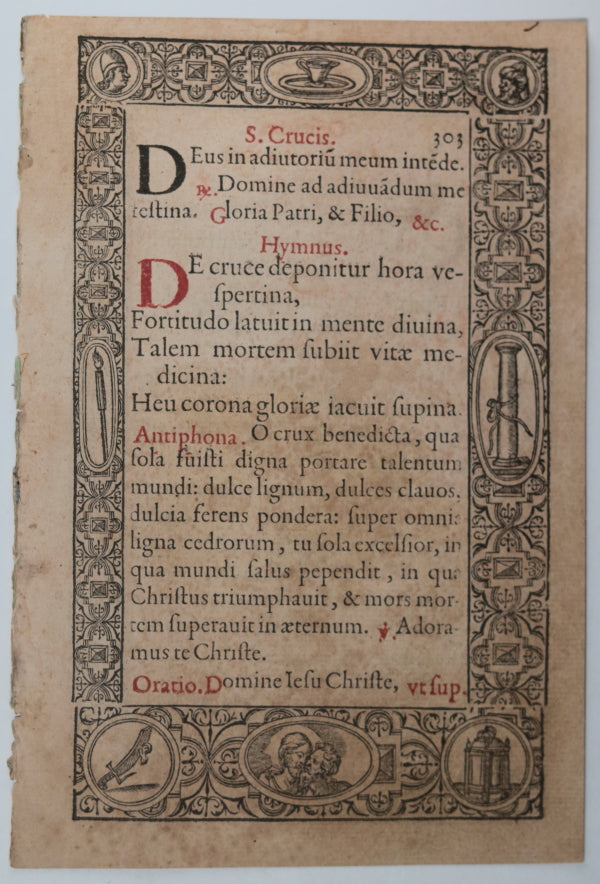 S. Crucis. 303
DEus in adiutoriũ meum intẽde.
℞. Domine ad adiuuãdum me
festina. Gloria Patri, & Filio, &c.
Hymnus.
DE cruce deponitur hora ve-
spertina,
Fortitudo latuit in mente diuina,
Talem mortem subiit vitæ me-
dicina:
Heu corona gloriæ iacuit supina.
Antiphona. O crux benedicta, qua
sola fuisti digna portare talentum
mundi: dulce lignum, dulces clauos,
dulcia ferens pondera: super omnia
ligna cedrorum, tu sola excelsior, in
qua mundi salus pependit, in qua
Christus triumphauit, & mors mor-
tem superauit in æternum. ℣. Adora-
mus te Christe.
Oratio. Domine Iesu Christe, vt sup.